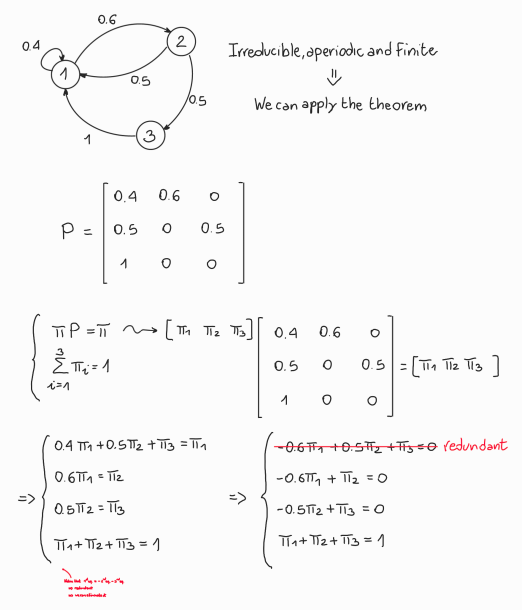 0.6
0.4
1
2
0.5
0.5
1
3
Irreducible, aperiodic and finite
⇓
We can apply the theorem
P = [ 0.4 0.6 0
0.5 0 0.5
1 0 0 ]
{ πP = π ⇝ [π₁ π₂ π₃] [ 0.4 0.6 0
0.5 0 0.5
1 0 0 ] = [π₁ π₂ π₃]
∑³ᵢ₌₁ πᵢ = 1
=> { 0.4 π₁ + 0.5 π₂ + π₃ = π₁
0.6 π₁ = π₂
0.5 π₂ = π₃
π₁ + π₂ + π₃ = 1
=> { -0.6 π₁ + 0.5 π₂ + π₃ = 0 redundant
-0.6 π₁ + π₂ = 0
-0.5 π₂ + π₃ = 0
π₁ + π₂ + π₃ = 1